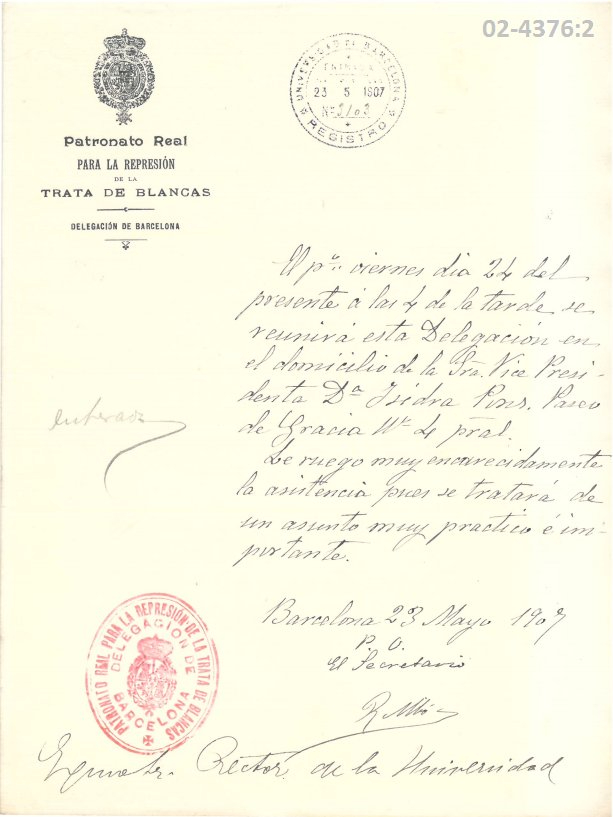 02-4376:2
UNIVERSIDAD DE BARCELONA
ENTRADA
23 5 1907
Nº 3103
REGISTRO
Patronato Real
PARA LA REPRESIÓN
DE LA
TRATA DE BLANCAS
DELEGACIÓN DE BARCELONA
El pº. viernes dia 24 del
presente á las 4 de la tarde se
reunirá esta Delegación en
el domicilio de la Sra. Vice Presi-
denta Dª Isidra Pons. Paseo
de Gracia Nº 4 pral.
Le ruego muy encarecidamente
la asistencia pues se tratará de
un asunto muy práctico é im-
portante.
Enterado
Barcelona 23 Mayo 1907
P. O.
El Secretario
R. Albó
PATRONATO REAL PARA LA REPRESIÓN DE LA TRATA DE BLANCAS
DELEGACIÓN DE
BARCELONA
Exmo Sr. Rector de la Universidad